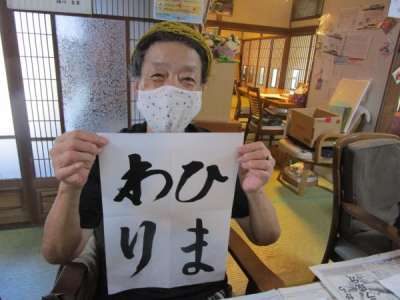 ひま
わり